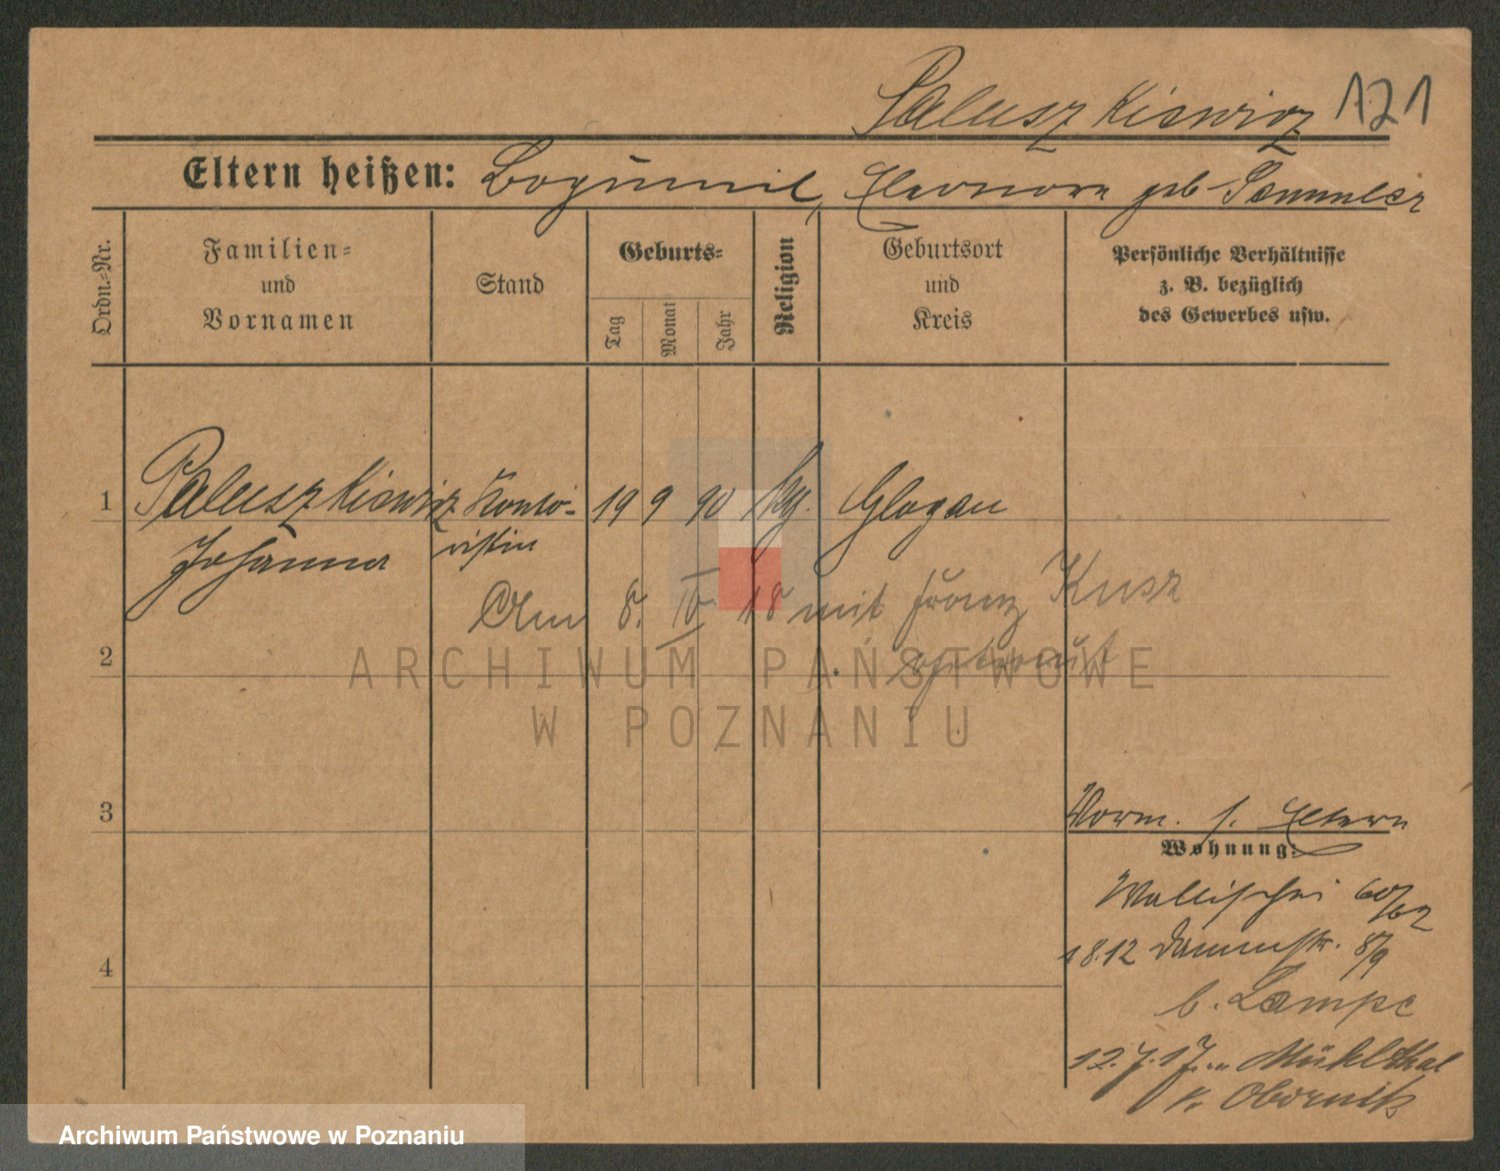 Paluszkiewicz 121
Eltern heißen: Bogumil, Eleonora geb. Semmler
Ordn.-Nr.
Familien- und Vornamen
Stand
Geburts-
Tag
Monat
Jahr
Religion
Geburtsort und Kreis
Persönliche Verhältnisse z. B. bezüglich des Gewerbes usw.
1 Paluszkiewicz Konto- 19 9 90 Glogau
Johanna ristin
Am 8. IV. 18 mit Franz Kusz
2
3
Vorm. s. Eltern
Wohnung:
Wallischei 60/62
18.12 Dammstr. 8/9
4
b. Lampe
12.7.17. n. Mühlthal
Kr. Obornik
ARCHIWUM PAŃSTWOWE
W POZNANIU
Archiwum Państwowe w Poznaniu